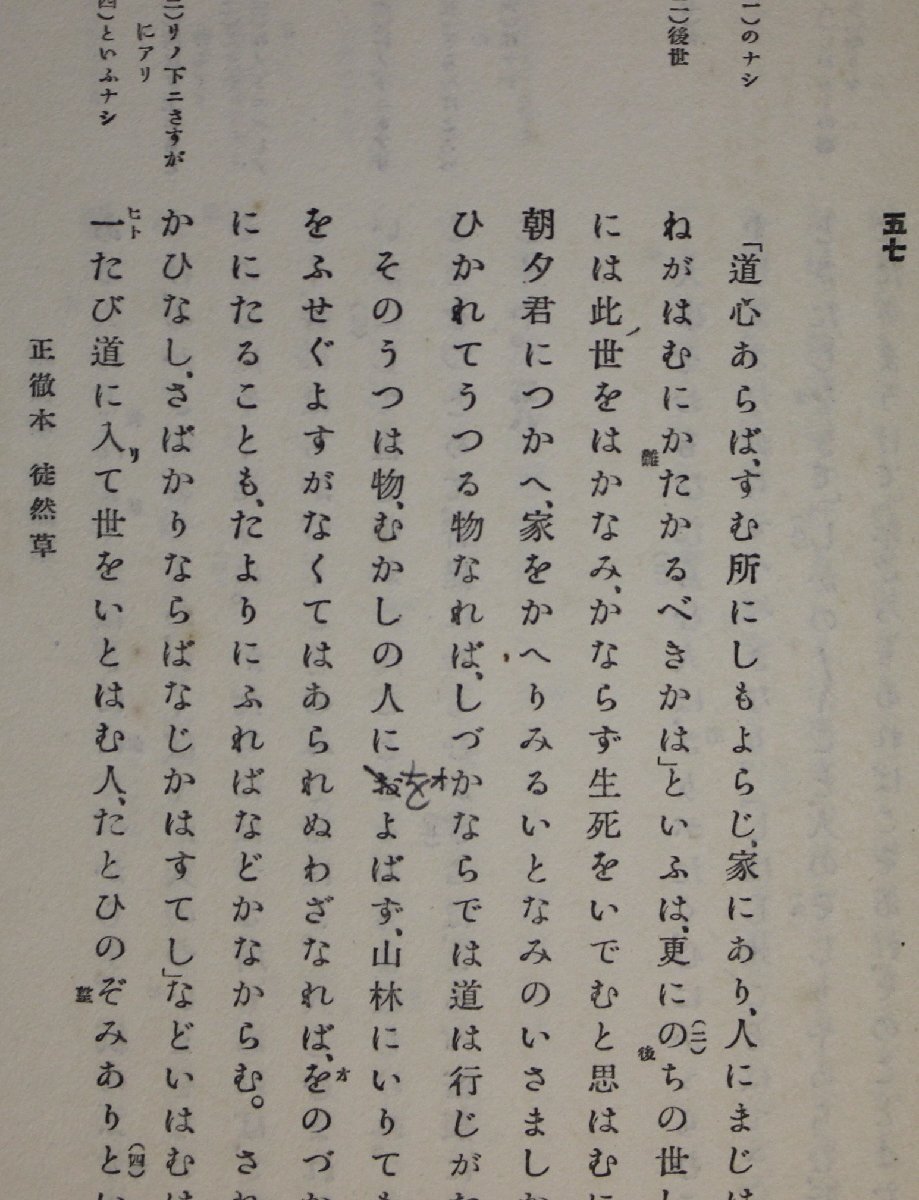 五七
「道心あらば、すむ所にしもよらじ、家にあり、人にまじは
ねがはむにかたかるべきかは」といふは、更にのちの世し
難
(二)
後
には此ノ世をはかなみ、かならず生死をいでむと思はむに
朝夕君につかへ、家をかへりみるいとなみのいさましか
ひかれてうつる物なれば、しづかならでは道は行じがた
そのうつは物、むかしの人におよばず、山林にいりても
オ
を
をふせぐよすがなくてはあられぬわざなれば、をのづか
オ
ににたることも、たよりにふればなどかなからむ。され
かひなし、さばかりならばなじかはすてし」などいはむは
一たび道に入リて世をいとはむ人、たとひのぞみありとい
ヒト
望
(四)
一)のナシ
二)後世
三)リノ下ニさすが
にアリ
四)といふナシ
正徹本 徒然草